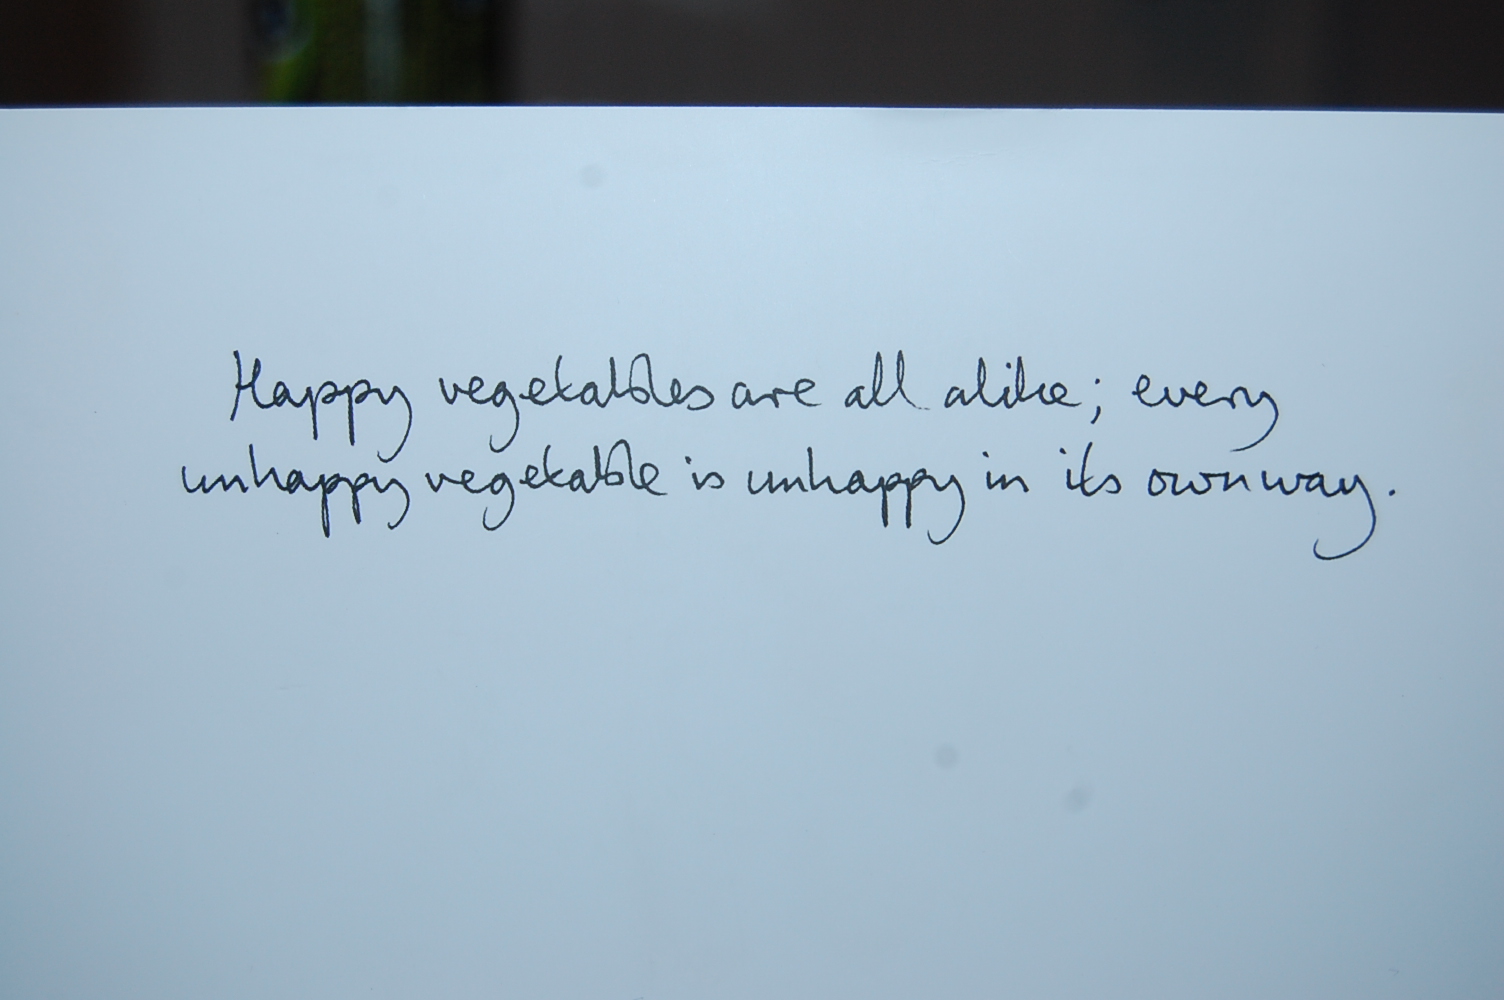 Happy vegetables are all alike; every
unhappy vegetable is unhappy in its own way.